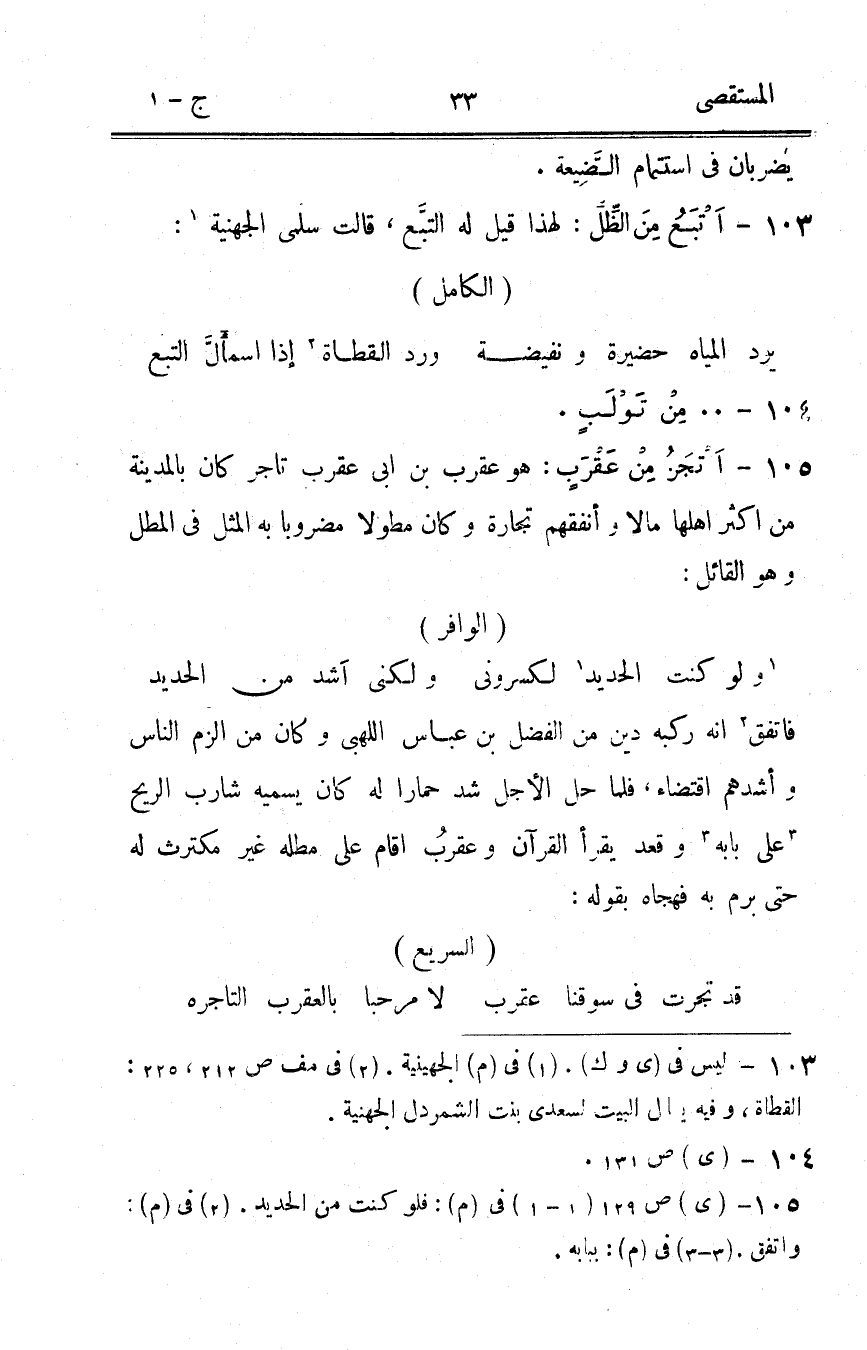 المستقصى ٣٣ ج - ١
يُضربان فى استتمام الصَّنِيعة .
١٠٣ - اَتْبَعُ مِنَ الظِّلِّ : لهذا قيل له التبَّع ، قالت سلمى الجهنية ١ :
( الكامل )
يرد المياه حضيرة و نفيضة ورد القطاة ٢ إذا اسمألَّ التبع
١٠٤ - ٠٠ مِنْ تَوْلَبٍ .
١٠٥ - اَتْجَرُ مِنْ عَقْرَبٍ : هو عقرب بن ابى عقرب تاجر كان بالمدينة
من اكثر اهلها مالا و أنفقهم تجارة و كان مطولا مضروبا به المثل فى المطل
و هو القائل :
( الوافر )
١ و لو كنت الحديد ١ لكسرونى و لكنى آشد من الحديد
فاتفق ٢ انه ركبه دين من الفضل بن عباس اللهبى و كان من الزم الناس
و أشدهم اقتضاء ، فلما حل الأجل شد حمارا له كان يسميه شارب الريح
٣ على بابه ٣ و قعد يقرأ القرآن و عقربُ اقام على مطله غير مكترث له
حتى برم به فهجاه بقوله :
( السريع )
قد تجرت فى سوقنا عقرب لا مرحبا بالعقرب التاجره
١٠٣ - ليس فى (ى و ك) . (١) فى (م) الجهينية . (٢) فى مف ص ٢١٢ ، ٢٢٥ :
القطاة ، و فيه ال البيت لسعدى بنت الشمردل الجهنية .
١٠٤ - ( ى ) ص ١٣١ .
١٠٥ - ( ى ) ص ١٢٩ ( ١ - ١ ) فى (م) : فلو كنت من الحديد . (٢) فى (م) :
و اتفق . (٣-٣) فى (م) : ببابه .